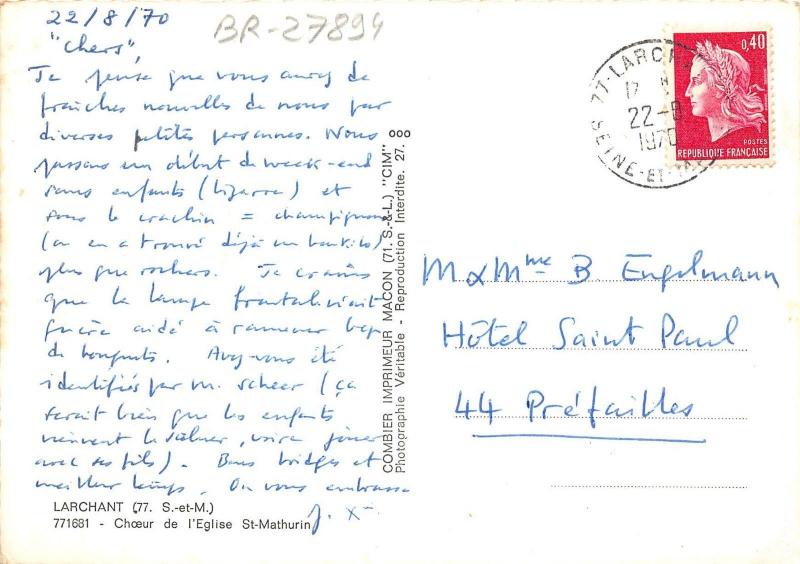 22/8/70
BR-27894
"Chers",
Je pense que vous aurez de
fraîches nouvelles de nous par
diverses petites personnes. Nous
passons un début de week-end
sans enfants (bizarre) et
sous le crachin = champignons
(on en a trouvé déjà un kilo)
plus que rochers. Je crains
que la lampe frontale
guère aidé à ramener
de bouquets. Avez-vous été
identifiés par M. Scheer (ça
serait bien que les enfants
viennent le saluer, voire jouer
avec ses fils). Bons bridges et
meilleur temps. On vous embrasse
J.
LARCHANT (77. S.-et-M.)
771681 - Chœur de l'Eglise St-Mathurin
COMBIER IMPRIMEUR MACON (71. S.-&-L.) "CIM"
Photographie Véritable - Reproduction Interdite. 27.
77-LARCH
22-8
1970
SEINE-ET-
0,40
POSTES
REPUBLIQUE FRANÇAISE
M & Mme B. Engelmann
Hôtel Saint Paul
44 Préfailles